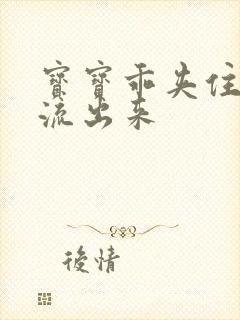 寳寳乖失住
流出来
後情